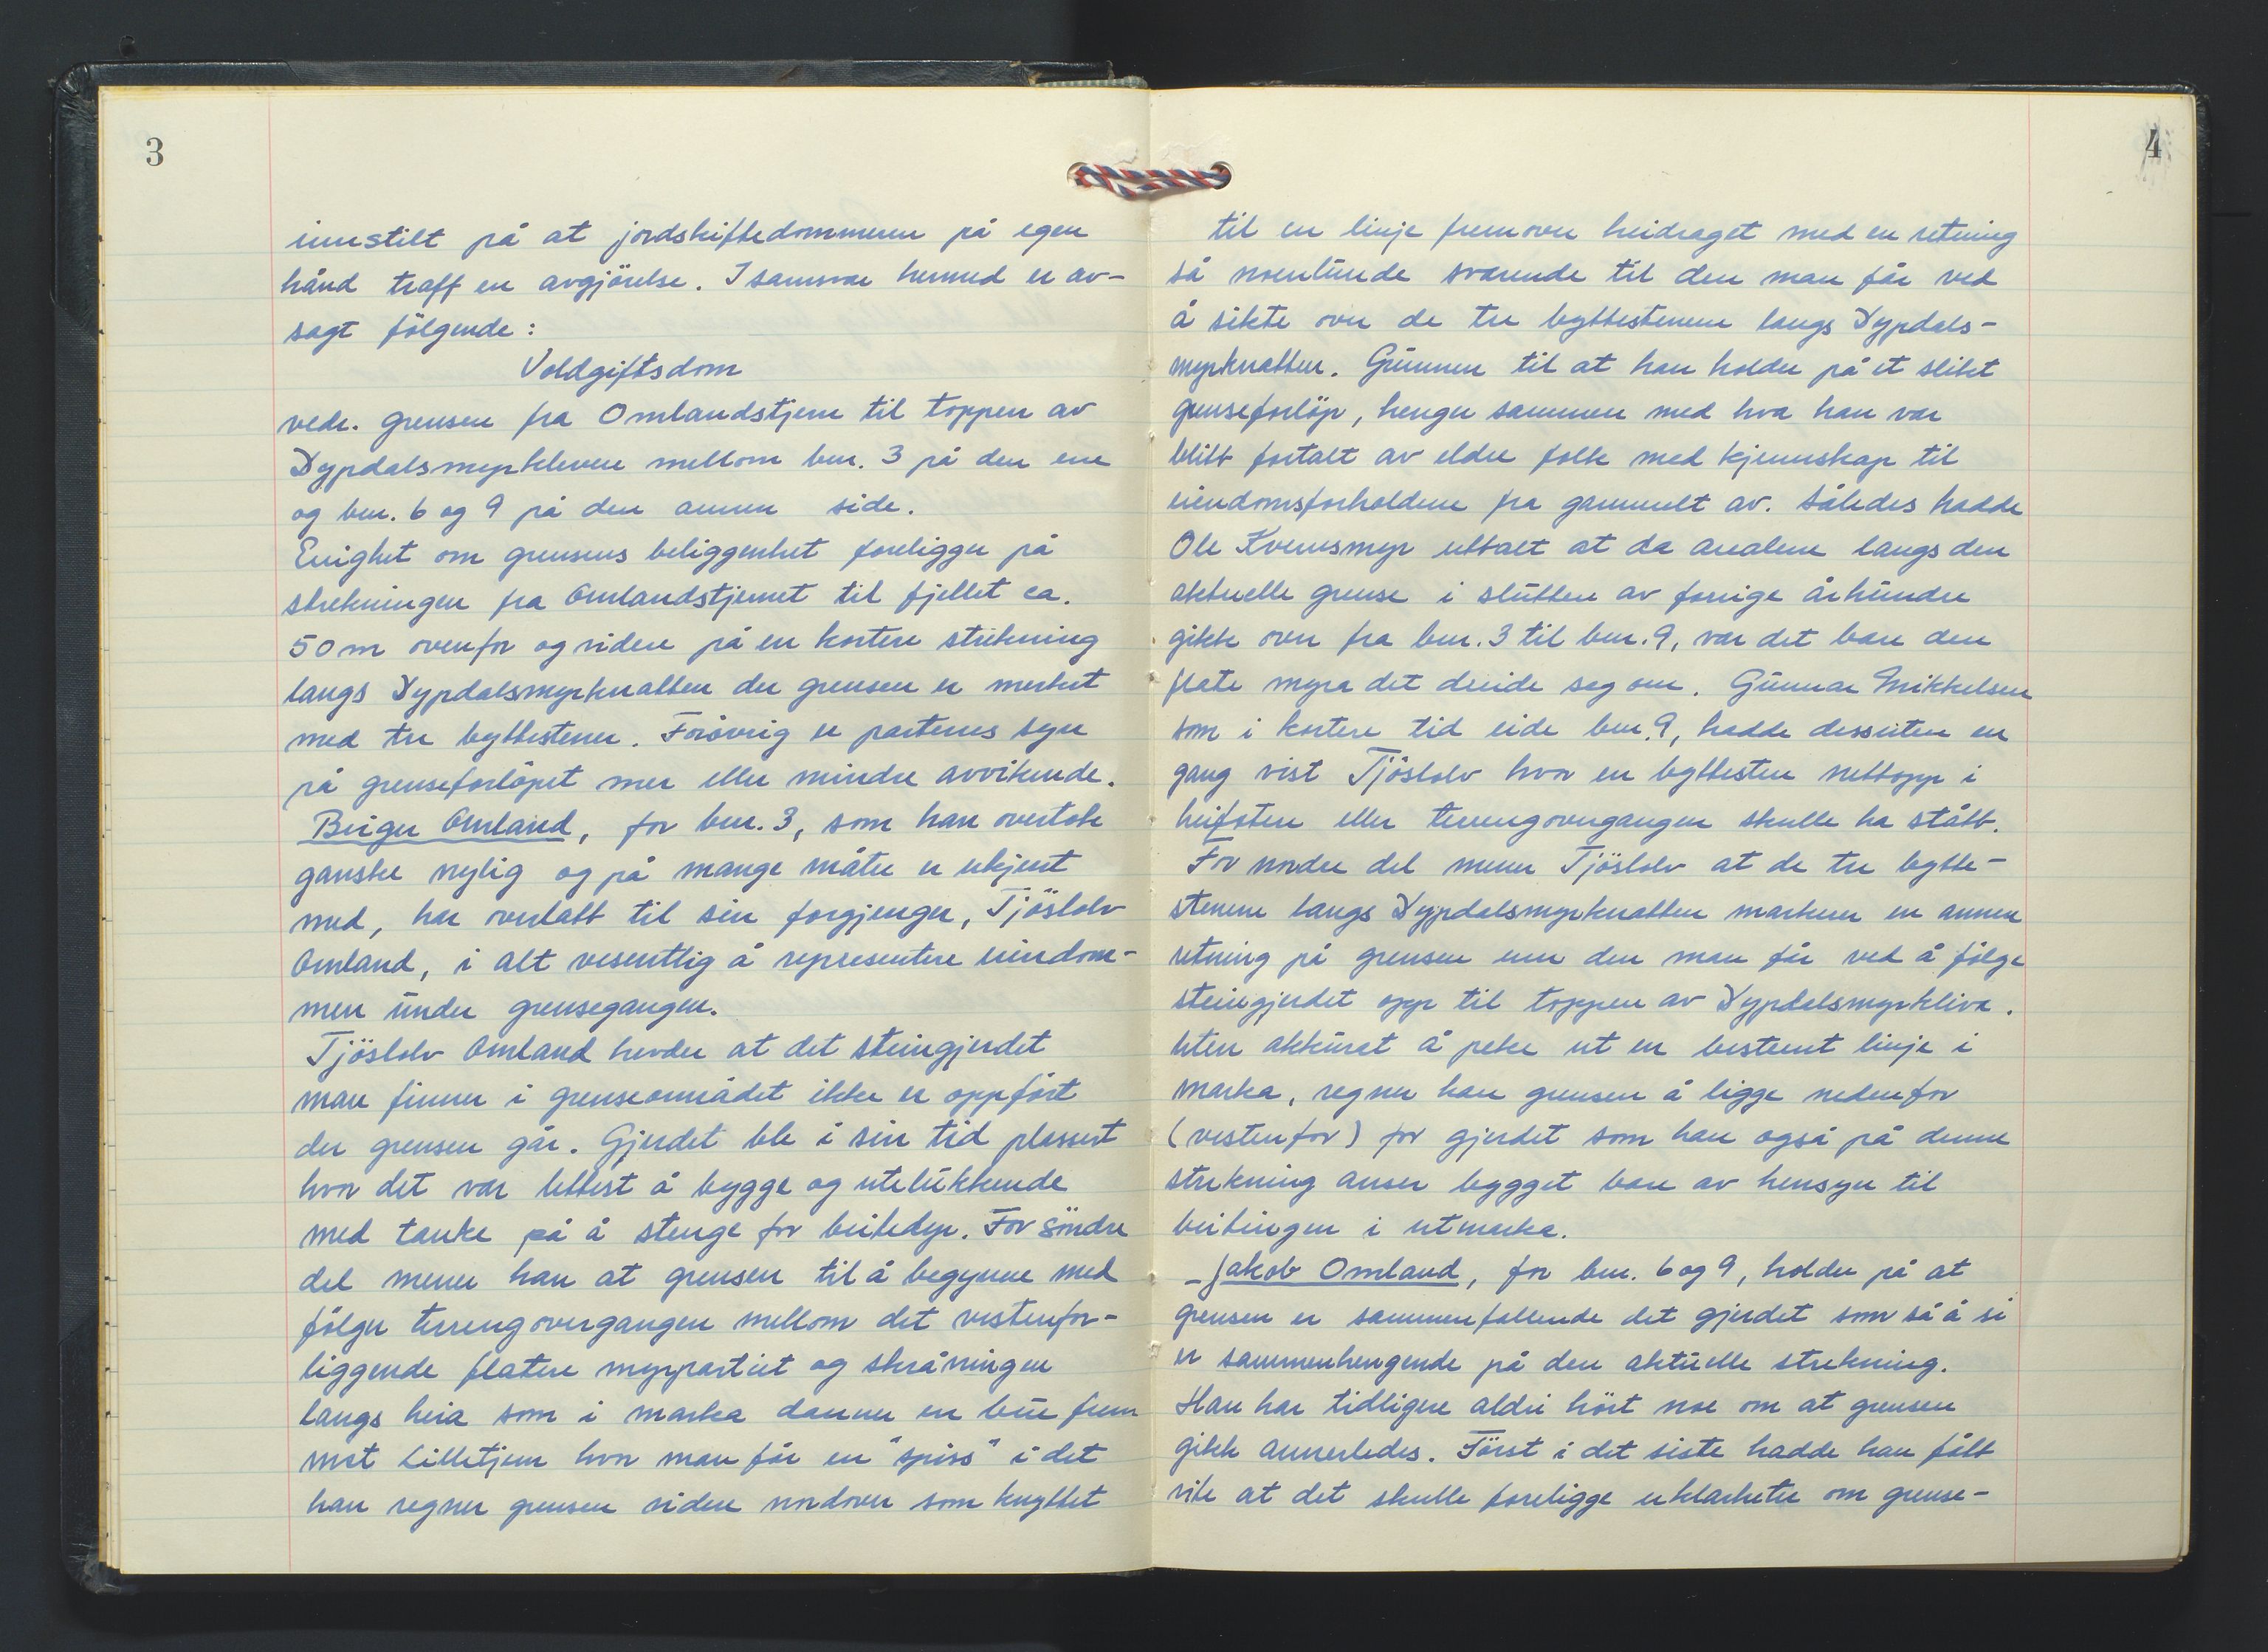 3
innstilt på at jordskiftedommeren på egen
hånd traff en avgjörelse. I samsvar hermed er av-
sagt fölgende:
Voldgiftsdom
vedr. grensen fra Omlandstjern til toppen av
Dypdalsmyrkleven mellom bnr. 3 på den ene
og bnr. 6 og 9 på den annen side.
Enighet om grensens beliggenhet foreligger på
strekningen fra Omlandstjernet til fjellet ca.
50 m ovenfor og videre på en kortere strekning
langs Dypdalsmyrknatten der grensen er merket
med tre byttestener. Forövrig er partenes syn
på grenseforlöpet mer eller mindre avvikende.
Birger Omland, for bnr. 3, som han overtok
ganske nylig og på mange måter er ukjent
med, har overlatt til sin forgjenger, Tjöslolv
Omland, i alt vesentlig å representere eiendom-
men under grensegangen.
Tjöslolv Omland hevder at det steingjerdet
man finner i grenseområdet ikke er oppfört
der grensen går. Gjerdet ble i sin tid plassert
hvor det var lettest å bygge og utelukkende
med tanke på å stenge for beitedyr. For söndre
del mener han at grensen til å begynne med
fölger terrengovergangen mellom det vestenfor-
liggende flatere myrpartiet og skråningen
langs heia som i marka danner en bue frem
mot Lilletjern hvor man får en "spiss" i det
han regner grensen videre nordover som knyttet
4
til en linje fremover heidraget med en retning
så noenlunde svarende til den man får ved
å sikte over de tre byttestenene langs Dypdals-
myrknatten. Grunnen til at han holder på et slikt
grenseforlöp, henger sammen med hva han var
blitt fortalt av eldre folk med kjennskap til
eiendomsforholdene fra gammelt av. Således hadde
Ole Kvernsmyr uttalt at da arealene langs den
aktuelle grense i slutten av forrige århundre
gikk over fra bnr. 3 til bnr. 9, var det bare den
flate myra det dreide seg om. Gunnar Mikkelsen
som i kortere tid eide bnr. 9, hadde dessuten en
gang vist Tjöslolv hvor en byttesten nettopp i
heifoten eller terrengovergangen skulle ha stått.
For nordre del mener Tjöslolv at de tre bytte-
stenene langs Dypdalsmyrknatten markerer en annen
retning på grensen enn den man får ved å fölge
steingjerdet opp til toppen av Dypdalsmyrkliva.
Uten akkurat å peke ut en bestemt linje i
marka, regner han grensen å ligge nedenfor
(vestenfor) for gjerdet som han også på denne
strekning anser bygget bare av hensyn til
beitingen i utmarka.
- Jakob Omland, for bnr. 6 og 9, holder på at
grensen er sammenfallende det gjerdet som så å si
er sammenhengende på den aktuelle strekning.
Han har tidligere aldri hört noe om at grensen
gikk annerledes. Först i det siste hadde han fått
vite at det skulle foreligge uklarheter om grense-